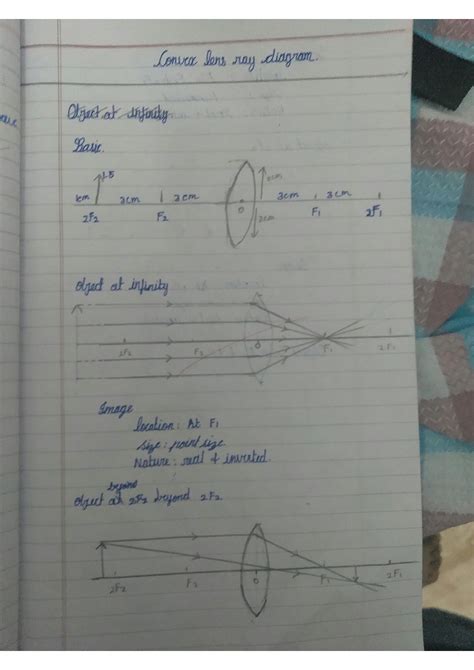 Convex lens ray diagram.
Object at infinity
Basic.
1.5
2cm
1cm 3cm 3cm 0 3cm 3cm
2F2 F2 2cm F1 2F1
Object at infinity
2F2 F2 0 F1 2F1
Image
location: At F1
size: point size.
Nature: real & inverted.
beyond
Object at 2F2 beyond 2F2.
2F2 F2 0 F1 2F1